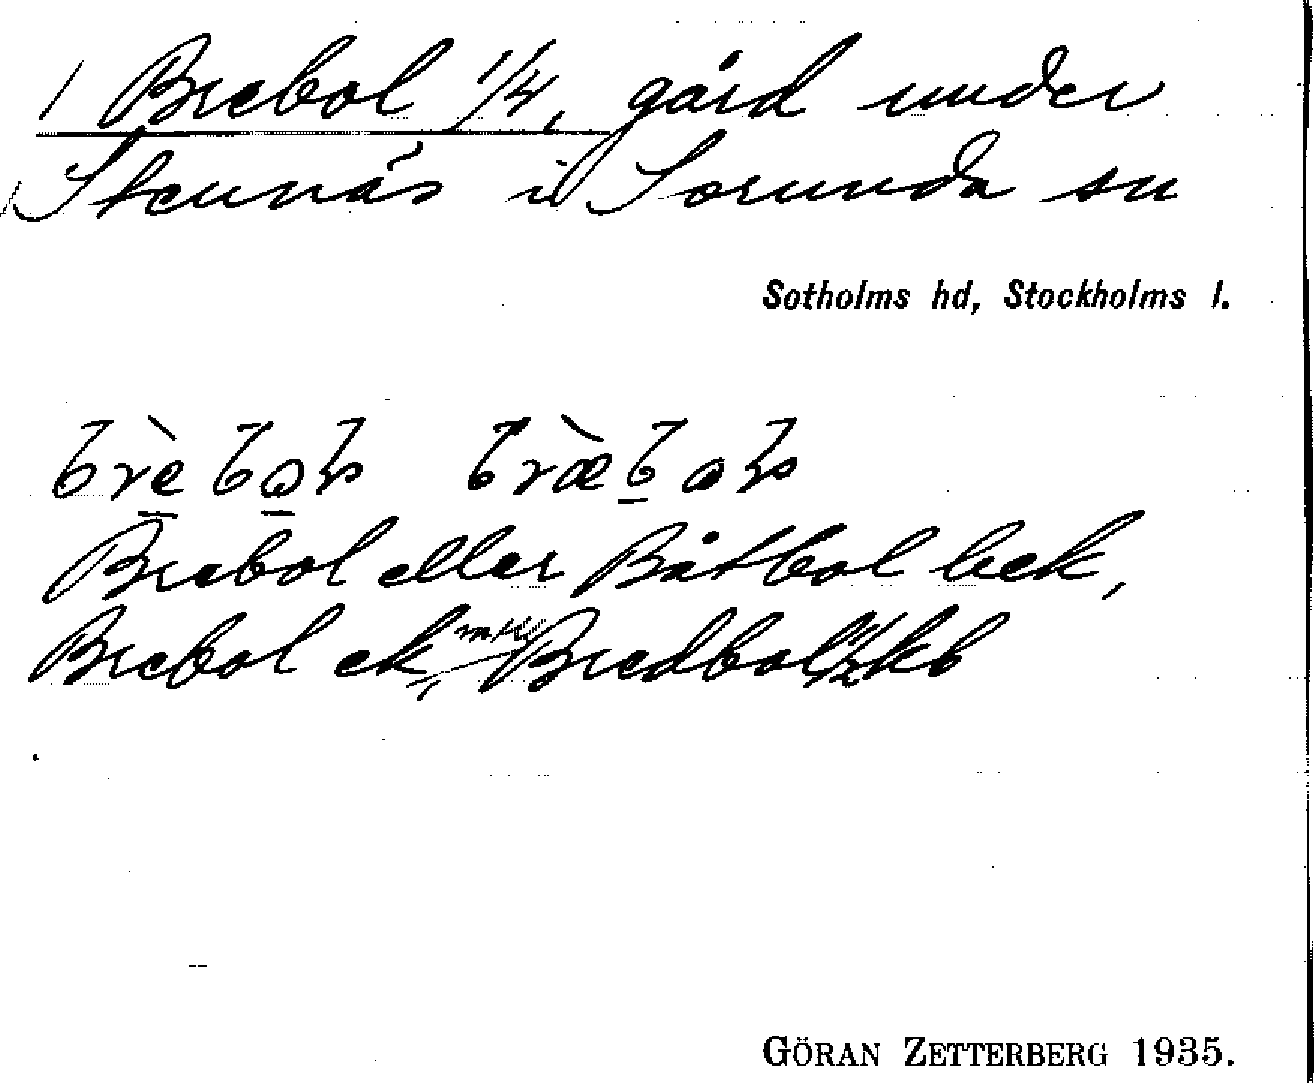 Brebol 1/4, gård under
Stennäs i Sorunda sn
Sotholms hd, Stockholms l.
Brebol eller Båtbol bek,
Brebol ek, Bredbol 1/2 kb
GÖRAN ZETTERBERG 1935.